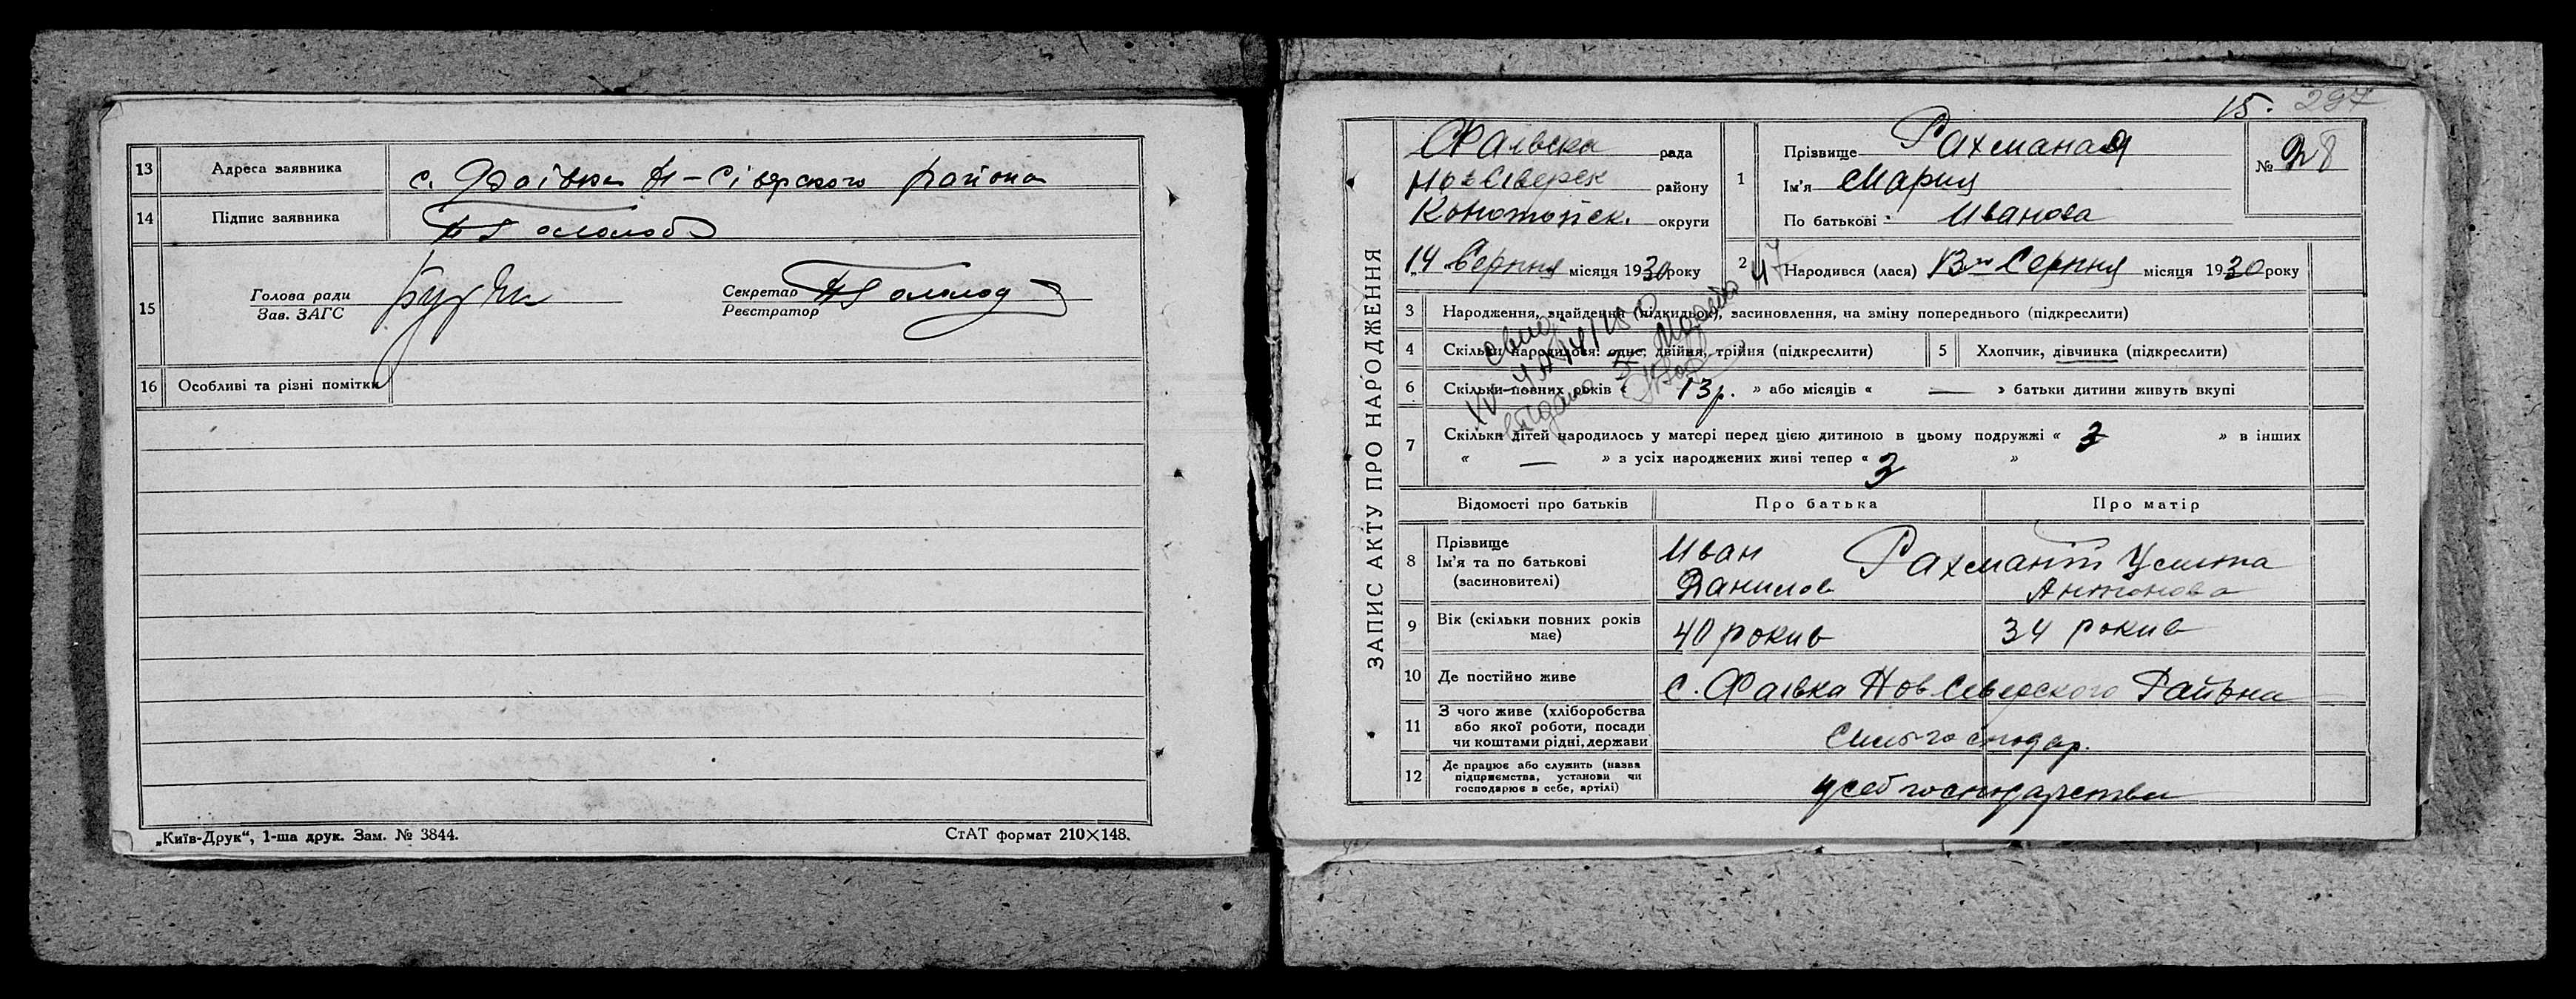 13 Адреса заявника с. Фаївка Н-Сіверского района
14 Підпис заявника
15 Голова ради
Зав. ЗАГС
Секретар
Реєстратор
16 Особливі та різні помітки
„Київ-Друк“, 1-ша друк. Зам. № 3844.
СтАТ формат 210×148.
15. 297
ЗАПИС АКТУ ПРО НАРОДЖЕННЯ
Фаівска рада
НовСіверск району
Конотопск. округи
14 Серпня місяця 1930 року
1 Прізвище Рахманая
Ім'я Мария
По батькові Иванова
№ 28
2 Народився (лася) 13го Серпня місяця 1930 року
3 Народження, знайдення (підкидьок), засиновлення, на зміну попереднього (підкреслити)
4 Скільки народилося: одне, двійня, трійня (підкреслити) 5 Хлопчик, дівчинка (підкреслити)
6 Скільки повних років « 13 р. » або місяців « — » батьки дитини живуть вкупі
7 Скільки дітей народилось у матері перед цією дитиною в цьому подружжі « 3 » в інших
« — » з усіх народжених живі тепер « 3 »
Відомості про батьків Про батька Про матір
8 Прізвище
Ім'я та по батькові
(засиновителі)
Иван Рахманїі Устина
Данилов Антонова
9 Вік (скільки повних років має) 40 рокив 34 рокив
10 Де постійно живе с. Фаівка Нов Северского Района
11 З чого живе (хліборобства
або якої роботи, посади
чи коштами рідні, держави
Сильгосподар.
12 Де працює або служить (назва
підприємства, установи чи
господарює в себе, артілі)
усеб господарстви